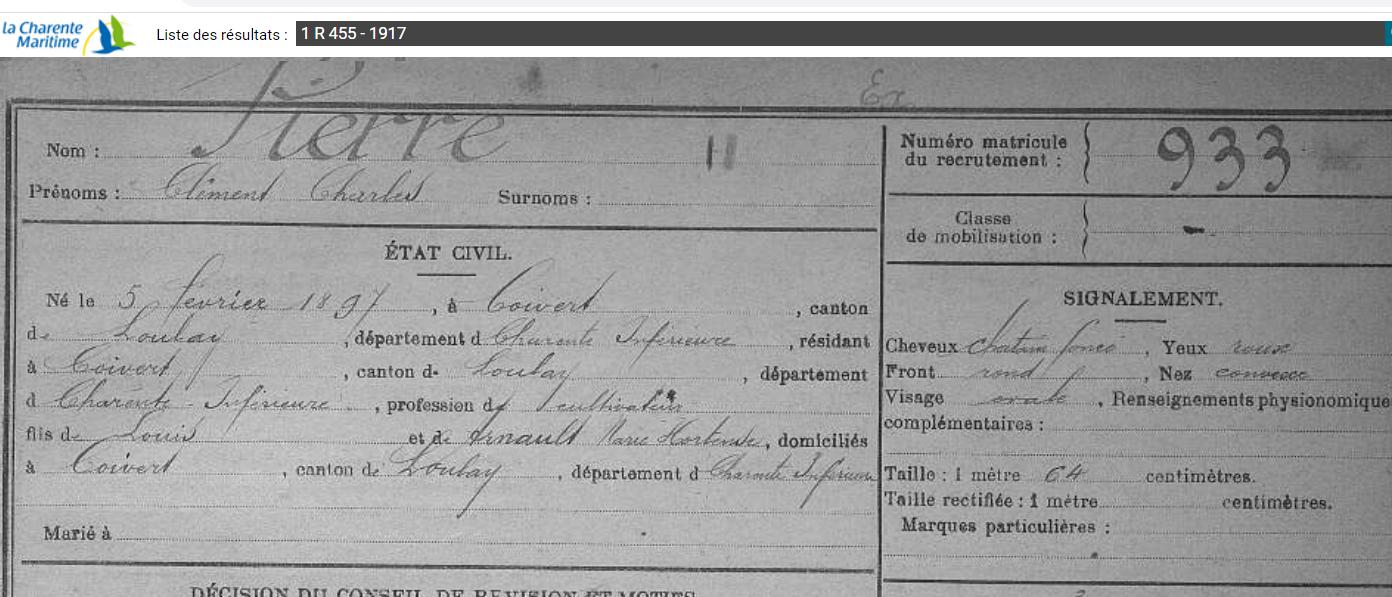 la Charente
Maritime
Liste des résultats : 1 R 455 - 1917
Ex.
Nom : Pierre
Prénoms : Clément Charles Surnoms :
Numéro matricule
du recrutement : 933
Classe
de mobilisation : -
ÉTAT CIVIL.
Né le 5 février 1897, à Coivert, canton
de Loulay, département d Charente Inférieure, résidant
à Coivert, canton de Loulay, département
d Charente-Inférieure, profession de cultivateur
fils de Louis et de Arnault Marie Hortense, domiciliés
à Coivert, canton de Loulay, département d Charente Inférieure
Marié à
SIGNALEMENT.
Cheveux chatain foncé, Yeux roux
Front rond, Nez convexe
Visage ovale, Renseignements physionomique
complémentaires :
Taille : 1 mètre 64 centimètres.
Taille rectifiée : 1 mètre centimètres.
Marques particulières :
DÉCISION DU CONSEIL DE REVISION ET MOTIFS